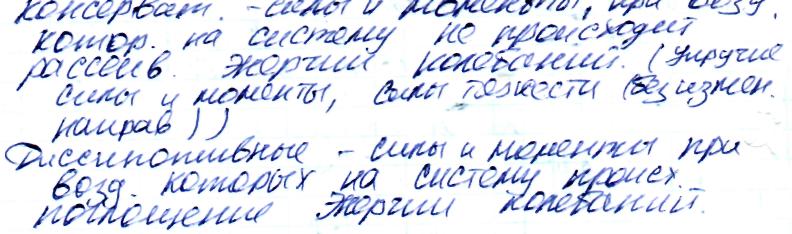 консерват. - силы и моменты, при возд.
котор. на систему не происходит
рассеив. энергии колебаний. (Упругие
силы и моменты, силы тяжести (без измен.
направ))
Диссипативные - силы и моменты при
возд. которых на систему происх.
поглощение энергии колебаний.